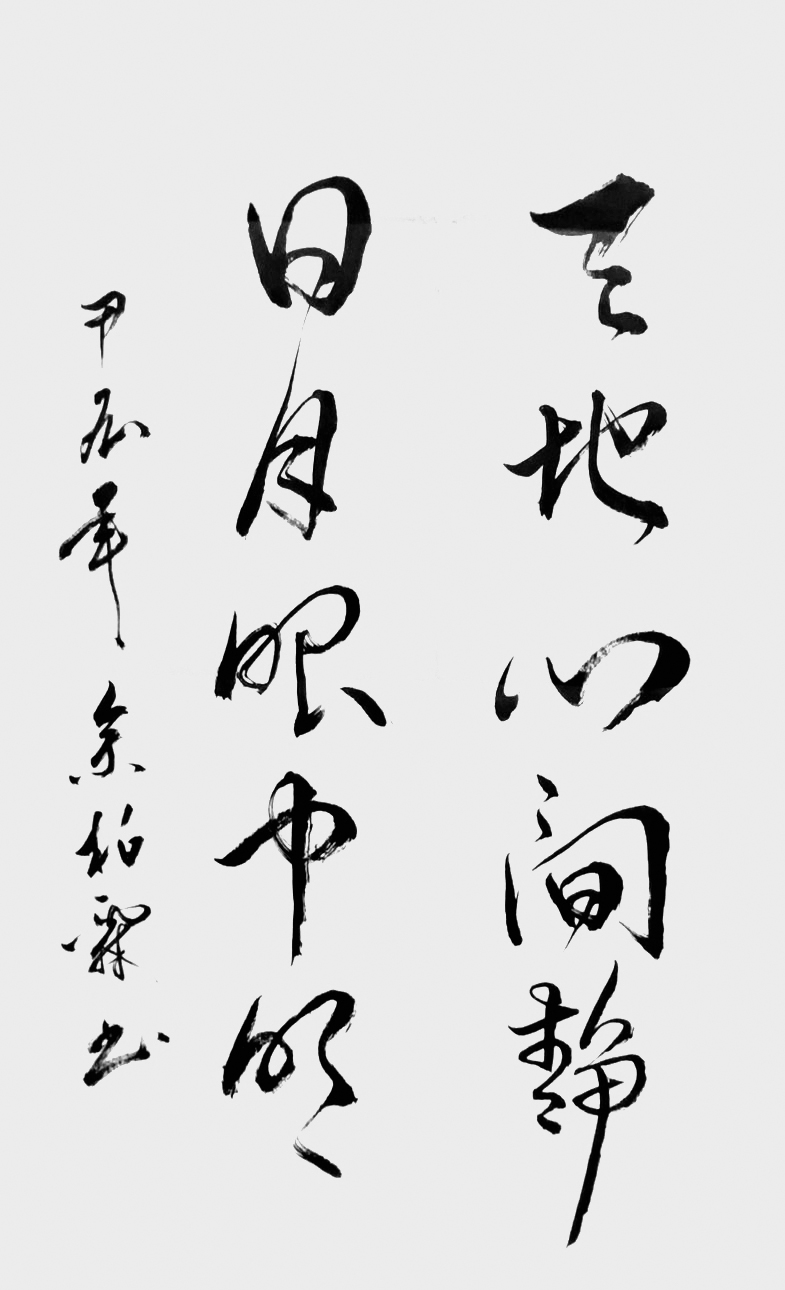 天地心间静
日月眼中明
甲辰年余柏霖书